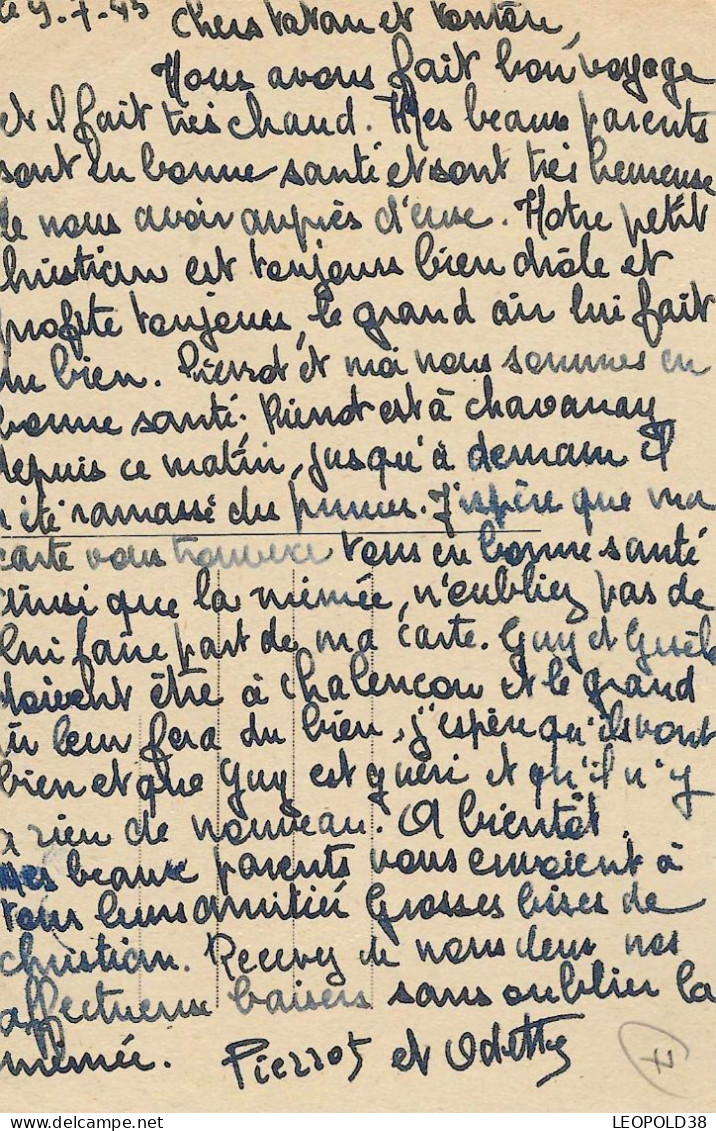 le 9-7-45
Chers tatan et tonton,
Nous avons fait bon voyage
et il fait très chaud. Mes beaux parents
sont en bonne santé et sont très heureuse
de nous avoir auprès d'euse. Notre petit
christian est toujours bien drôle et
profite toujours, le grand air lui fait
du bien. Pierrot et moi nous sommes en
bonne santé. Pierrot est à chavanay
depuis ce matin, jusqu'à demain il
a été ramassé du prunes. J'espère que ma
carte vous trouvera tous en bonne santé
ainsi que la mémée, n'oubliez pas de
lui faire part de ma carte. Guy et
doivent être à Chalencon et le grand
air leur fera du bien, j'espère qu'ils vont
bien et que Guy est guéri et qu'il n'y
a rien de nouveau. A bientôt.
Mes beaux parents vous envoient à
tous leurs amitiés Grosses bises de
christian. Recevez de nous deux nos
affectueuse baisers sans oublier la
mémée. Pierrot et Odette
7
LEOPOLD38